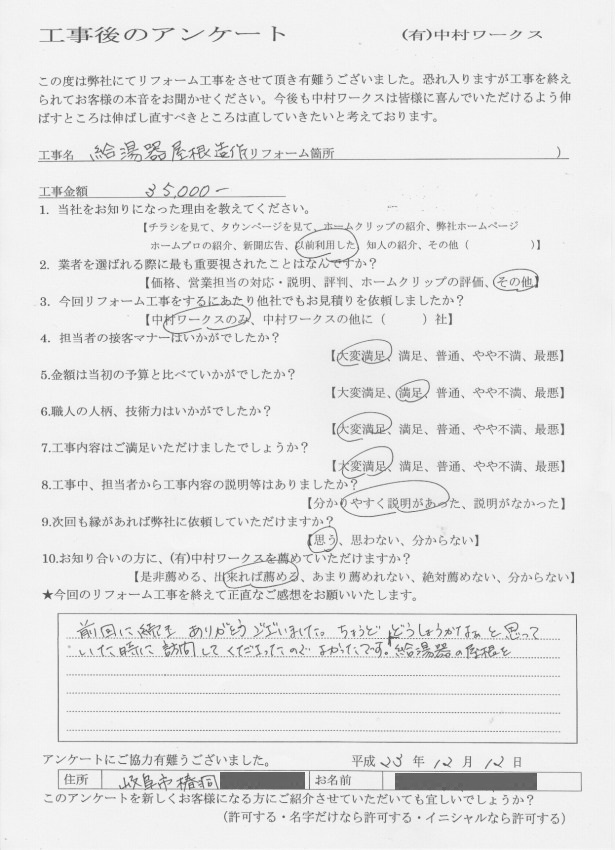 工事後のアンケート (有)中村ワークス
この度は弊社にてリフォーム工事をさせて頂き有難うございました。恐れ入りますが工事を終え
られてお客様の本音をお聞かせください。今後も中村ワークスは皆様に喜んでいただけるよう伸
ばすところは伸ばし直すべきところは直していきたいと考えております。
工事名 給湯器屋根造作リフォーム箇所 )
工事金額 35,000-
1. 当社をお知りになった理由を教えてください。
【チラシを見て、タウンページを見て、ホームクリップの紹介、弊社ホームページ
ホームプロの紹介、新聞広告、以前利用した、知人の紹介、その他( )】
2. 業者を選ばれる際に最も重要視されたことはなんですか？
【価格、営業担当の対応・説明、評判、ホームクリップの評価、その他】
3. 今回リフォーム工事をするにあたり他社でもお見積りを依頼しましたか？
【中村ワークスのみ、中村ワークスの他に( )社】
4. 担当者の接客マナーはいかがでしたか？
【大変満足、満足、普通、やや不満、最悪】
5.金額は当初の予算と比べていかがでしたか？
【大変満足、満足、普通、やや不満、最悪】
6.職人の人柄、技術力はいかがでしたか？
【大変満足、満足、普通、やや不満、最悪】
7.工事内容はご満足いただけましたでしょうか？
【大変満足、満足、普通、やや不満、最悪】
8.工事中、担当者から工事内容の説明等はありましたか？
【分かりやすく説明があった、説明がなかった】
9.次回も縁があれば弊社に依頼していただけますか？
【思う、思わない、分からない】
10.お知り合いの方に、(有)中村ワークスを薦めていただけますか？
【是非薦める、出来れば薦める、あまり薦めれない、絶対薦めない、分からない】
★今回のリフォーム工事を終えて正直なご感想をお願いいたします。
前回に続き ありがとうございました。ちょうど どうしようかなぁと思って
いた時に訪問してくださったのでよかったです。給湯器の屋根を
アンケートにご協力有難うございました。 平成 23 年 12 月 12 日
住所 岐阜市椿洞 お名前
このアンケートを新しくお客様になる方にご紹介させていただいても宜しいでしょうか？
(許可する・名字だけなら許可する・イニシャルなら許可する)